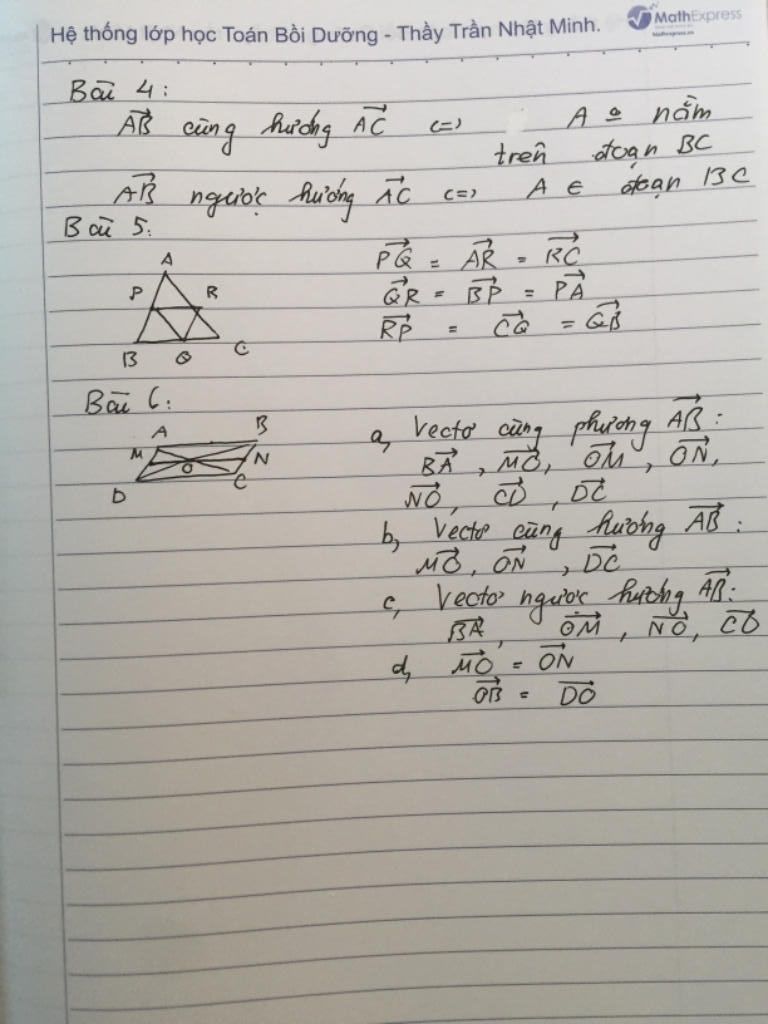 Hệ thống lớp học Toán Bồi Dưỡng - Thầy Trần Nhật Minh.
MathExpress
Mathexpress.vn
Bài 4:
$\overrightarrow{AB}$ cùng hướng $\overrightarrow{AC}$ <=> A nằm
trên đoạn BC
$\overrightarrow{AB}$ ngược hướng $\overrightarrow{AC}$ <=> A ∈ đoạn BC
Bài 5:
A
P R
B Q C
$\overrightarrow{PQ}$ = $\overrightarrow{AR}$ = $\overrightarrow{RC}$
$\overrightarrow{QR}$ = $\overrightarrow{BP}$ = $\overrightarrow{PA}$
$\overrightarrow{RP}$ = $\overrightarrow{CQ}$ = $\overrightarrow{QB}$
Bài 6:
A B
M O N
D C
a, Vectơ cùng phương $\overrightarrow{AB}$:
$\overrightarrow{BA}$, $\overrightarrow{MO}$, $\overrightarrow{OM}$, $\overrightarrow{ON}$,
$\overrightarrow{NO}$, $\overrightarrow{CD}$, $\overrightarrow{DC}$
b, Vectơ cùng hướng $\overrightarrow{AB}$:
$\overrightarrow{MO}$, $\overrightarrow{ON}$, $\overrightarrow{DC}$
c, Vectơ ngược hướng $\overrightarrow{AB}$:
$\overrightarrow{BA}$, $\overrightarrow{OM}$, $\overrightarrow{NO}$, $\overrightarrow{CD}$
d, $\overrightarrow{MO}$ = $\overrightarrow{ON}$
$\overrightarrow{OB}$ = $\overrightarrow{DO}$